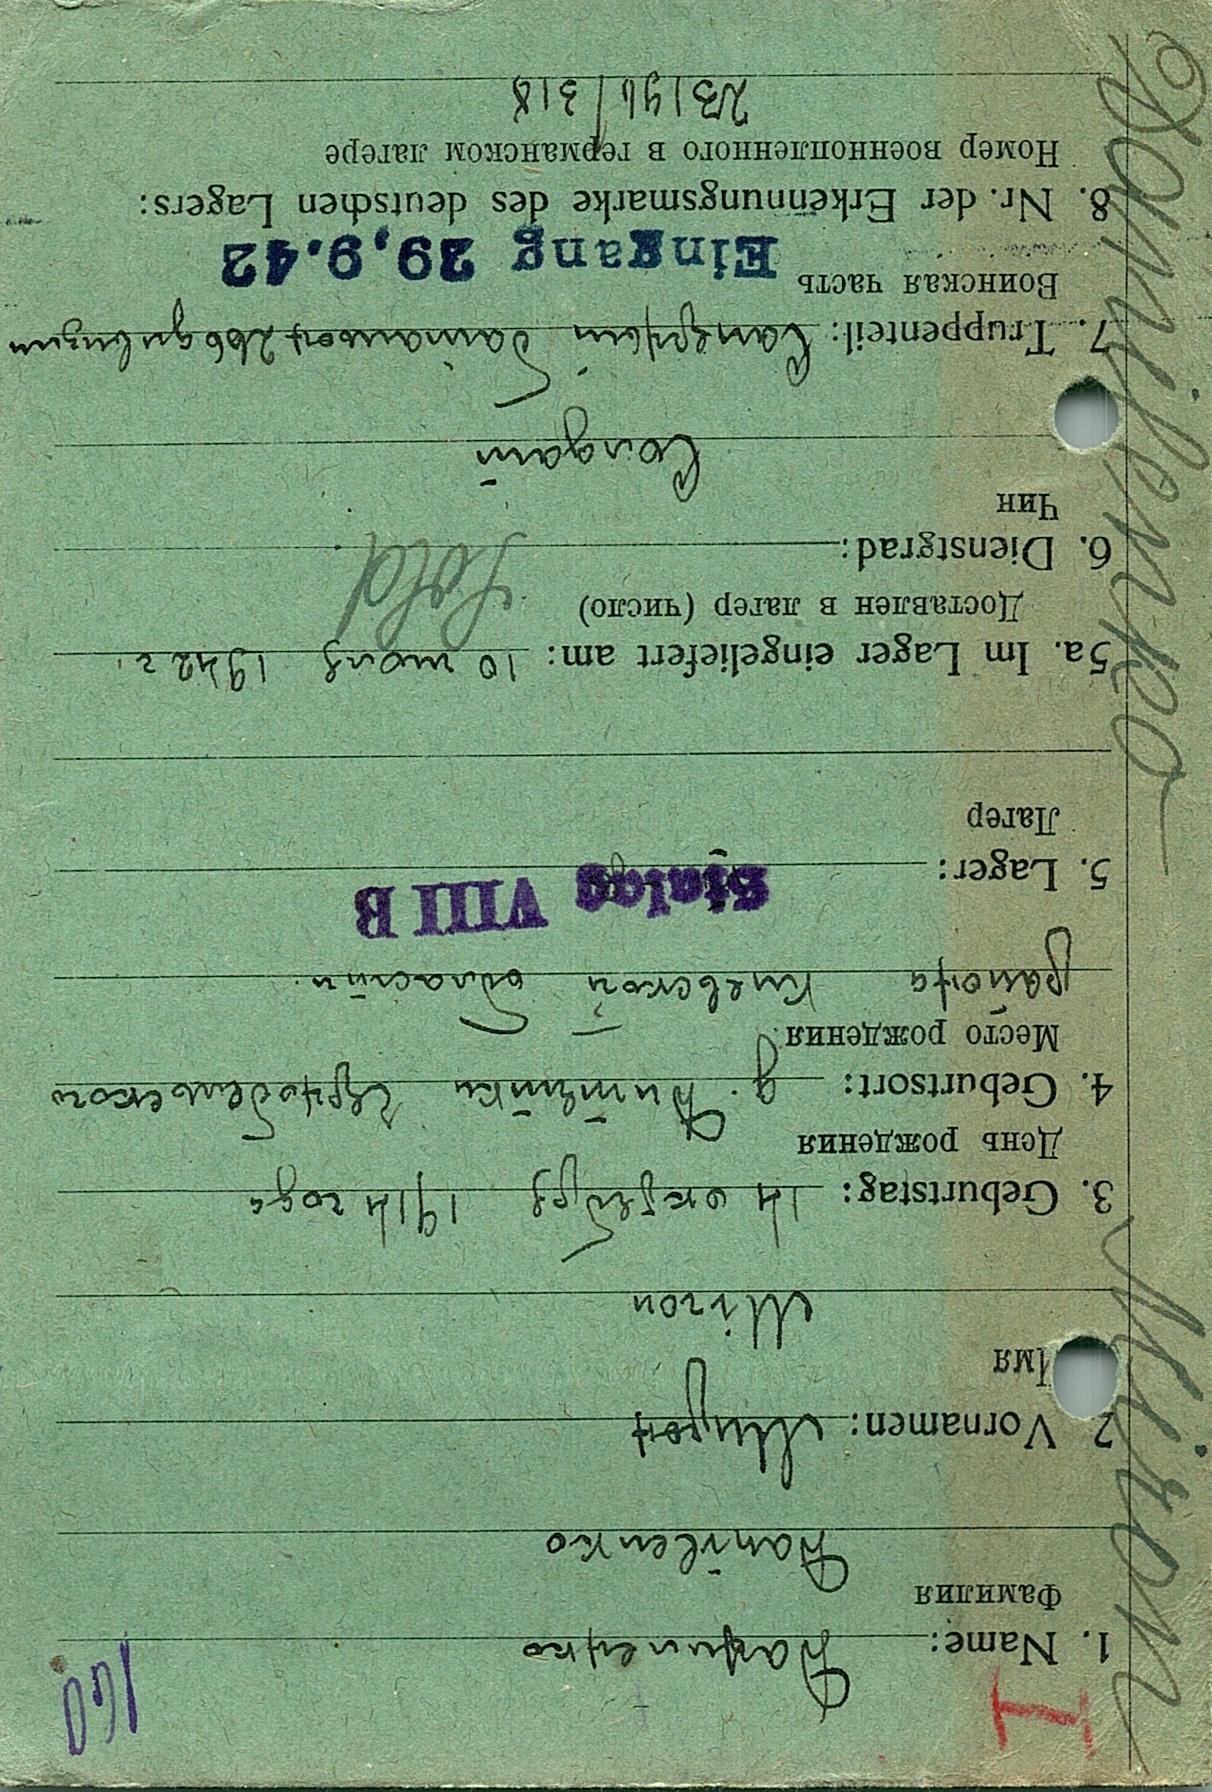 I 160
1. Name: Даниленко
Фамилия
Danilenko
2. Vornamen: Мирон
Имя
Miron
3. Geburtstag: 14 октября 1914 года
День рождения
4. Geburtsort: д. Чернобельского
Место рождения
района Киевской области
Stalag VIII B
5. Lager:
Лагер
5a. Im Lager eingeliefert am: 10 1942 г.
Доставлен в лагер (число)
Sold
6. Dienstgrad:
Чин
Солдат
7. Truppenteil: Саперный батальон 266 дивизии
Воинская часть
Eingang 29.9.42
8. Nr. der Erkennungsmarke des deutschen Lagers:
Номер военнопленного в германском лагере
23196/318
Danilenko Miron